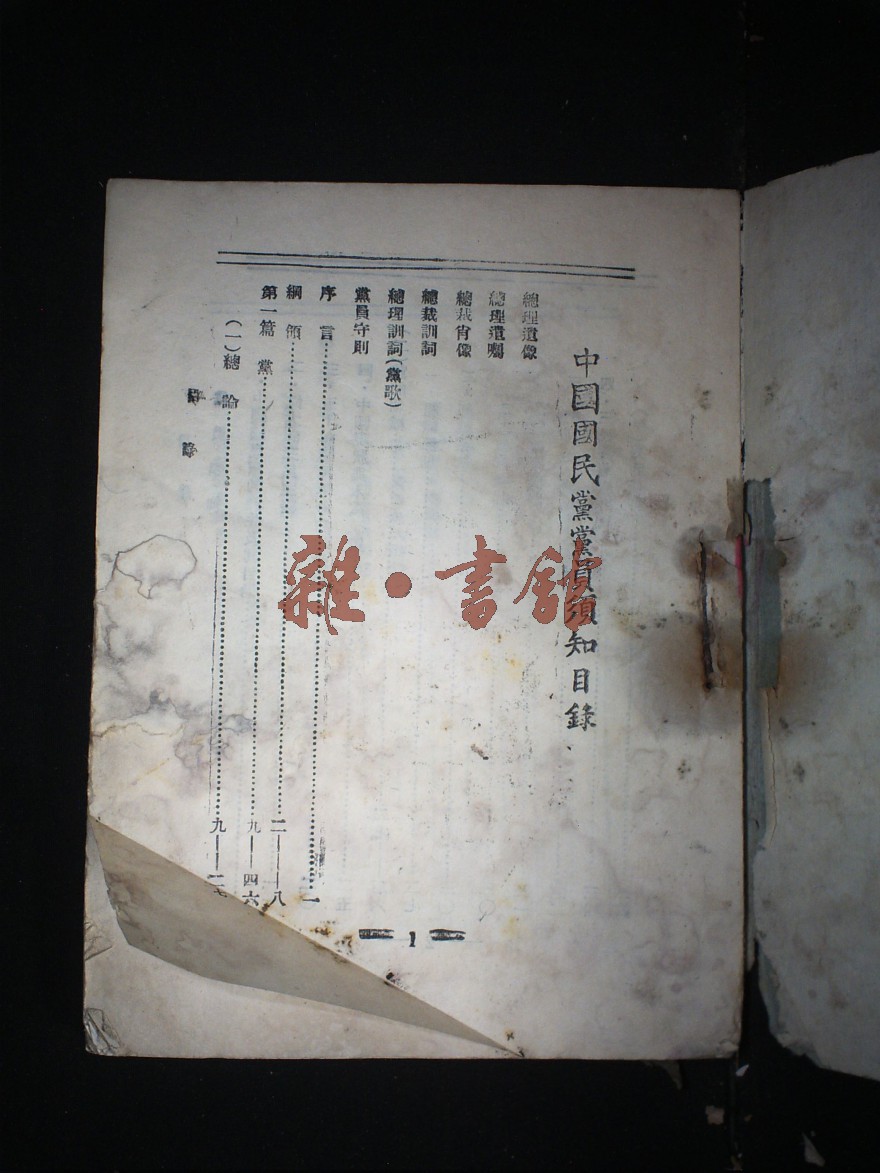 中國國民黨黨員須知目錄
總理遺像
總理遺囑
總裁肖像
總裁訓詞
總理訓詞(黨歌)
黨員守則
序言……一
綱領……二——八
第一篇 黨……九——四六
(一)總論……九——二
目錄
1
雜·書館